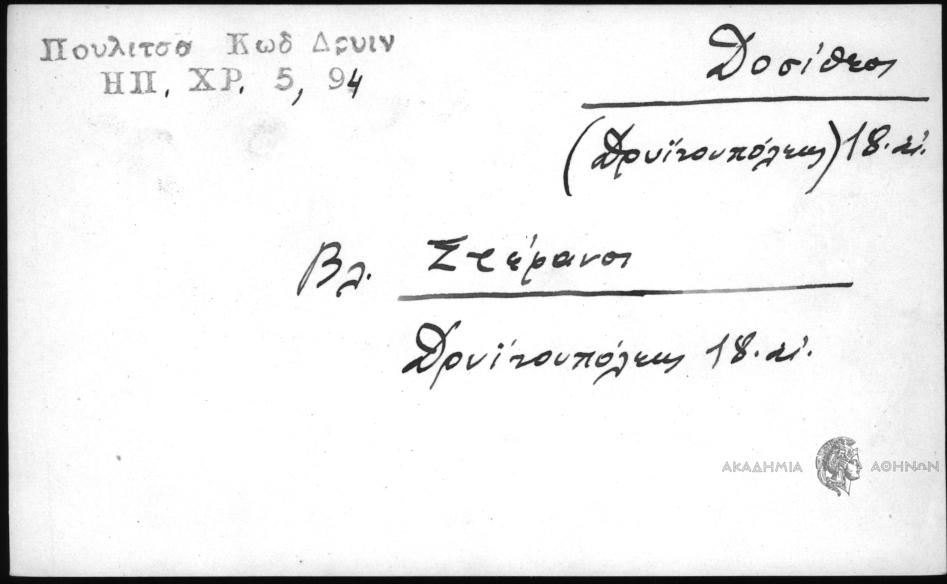 Πουλιτσα Κωδ Δρυιν
ΗΠ. ΧΡ. 5, 94
Δοσίθεος
(Δρυϊνουπόλεως) 18. αἰ.
Βλ. Στέφανος
Δρυϊνουπόλεως 18. αἰ.
ΑΚΑΔΗΜΙΑ ΑΘΗΝΩΝ